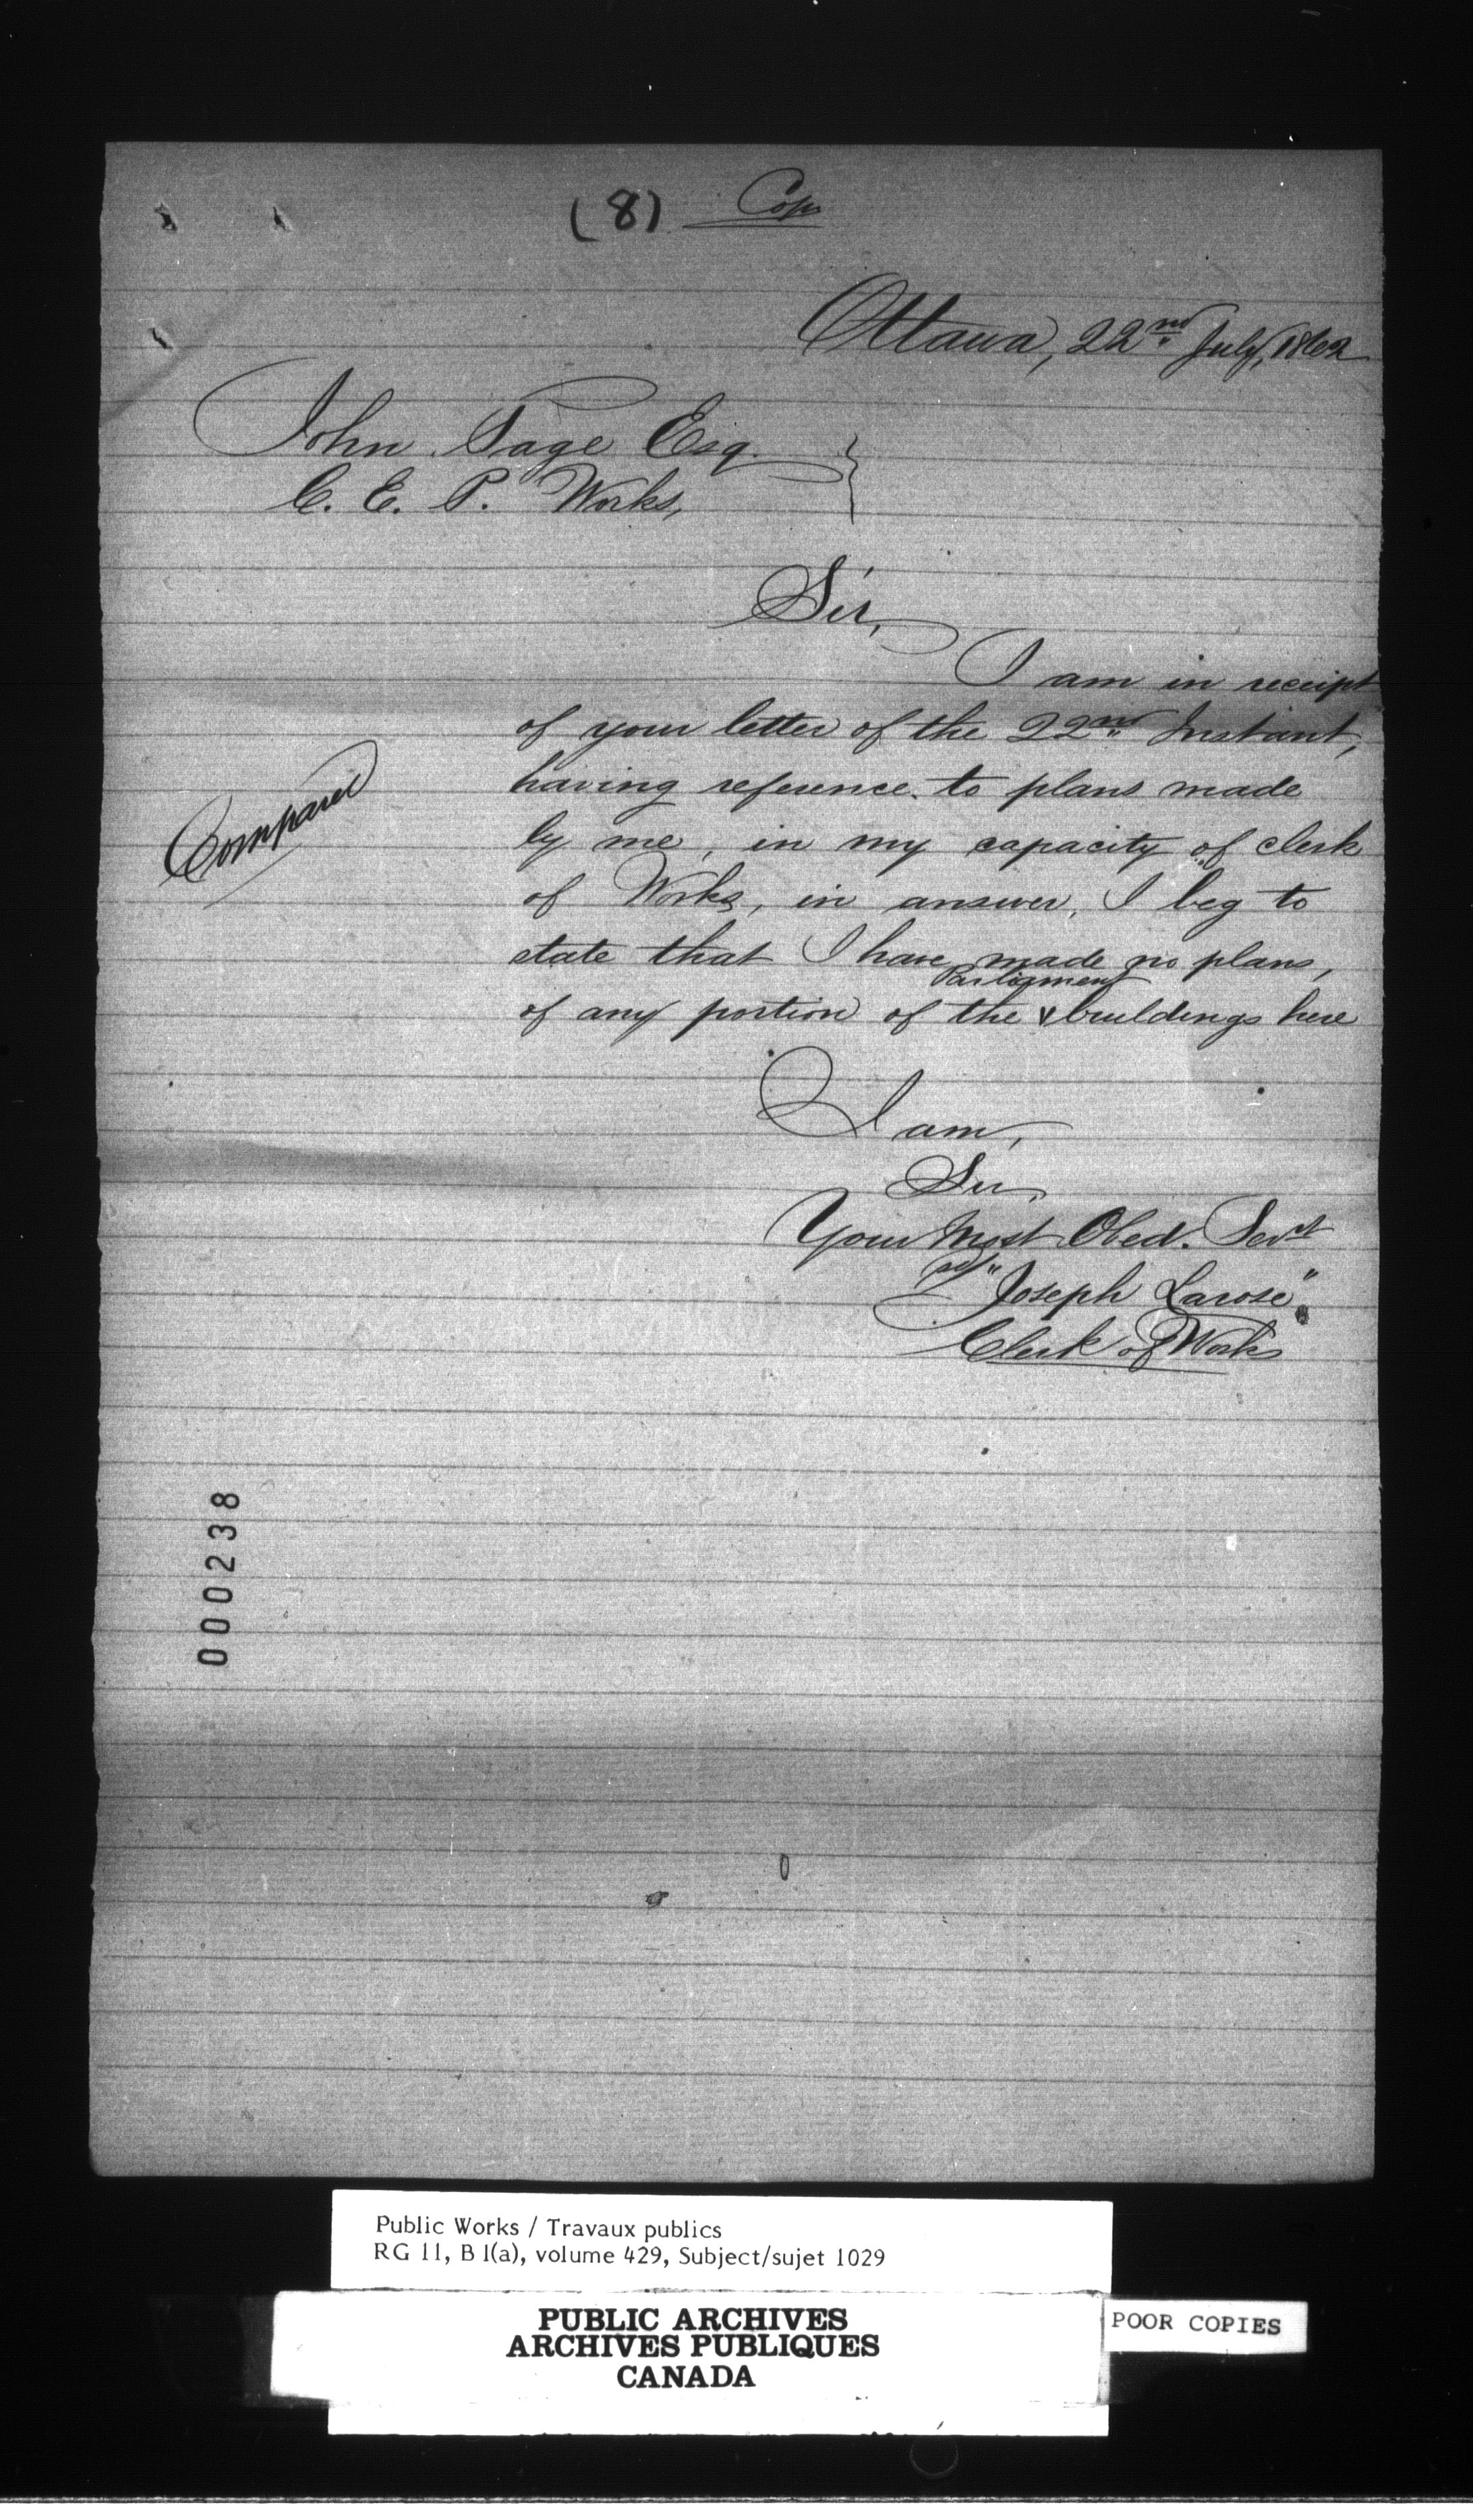 (8) Copy
Ottawa, 22nd July, 1862
John Page Esq.
C. E. P. Works,
Sir,
I am in receipt
of your letter of the 22nd Instant,
having reference to plans made
by me, in my capacity of clerk
of Works, in answer, I beg to
state that I have made no plans,
Parliament
of any portion of the buildings here
Compared
I am,
Sir,
Your Most Obed. Servt
sd/ "Joseph Larose"
Clerk of Works
000238
Public Works / Travaux publics
RG 11, B 1(a), volume 429, Subject/sujet 1029
PUBLIC ARCHIVES
ARCHIVES PUBLIQUES
CANADA
POOR COPIES